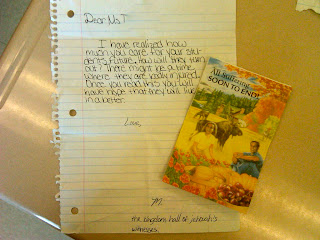 Dear Ms. T
I have realized how
much you care for your stu-
dents future. How will they turn
out? There might be a time
where they are badly injured.
Once you read this you will
have hope that they will live
in a better.
Love,
M.
the kingdom hall of jehovah's
witnesses.
All Suffering
SOON TO END!